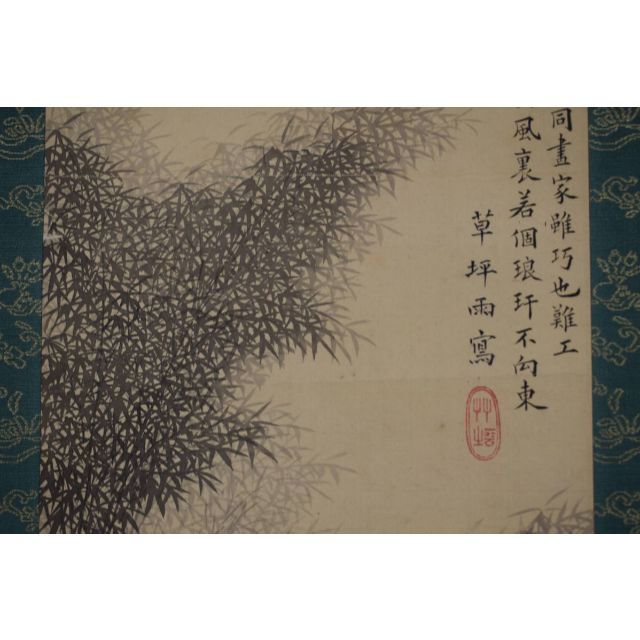 同畫家雖巧也難工
風裏若個琅玕不向東
草坪雨寫
艸坪